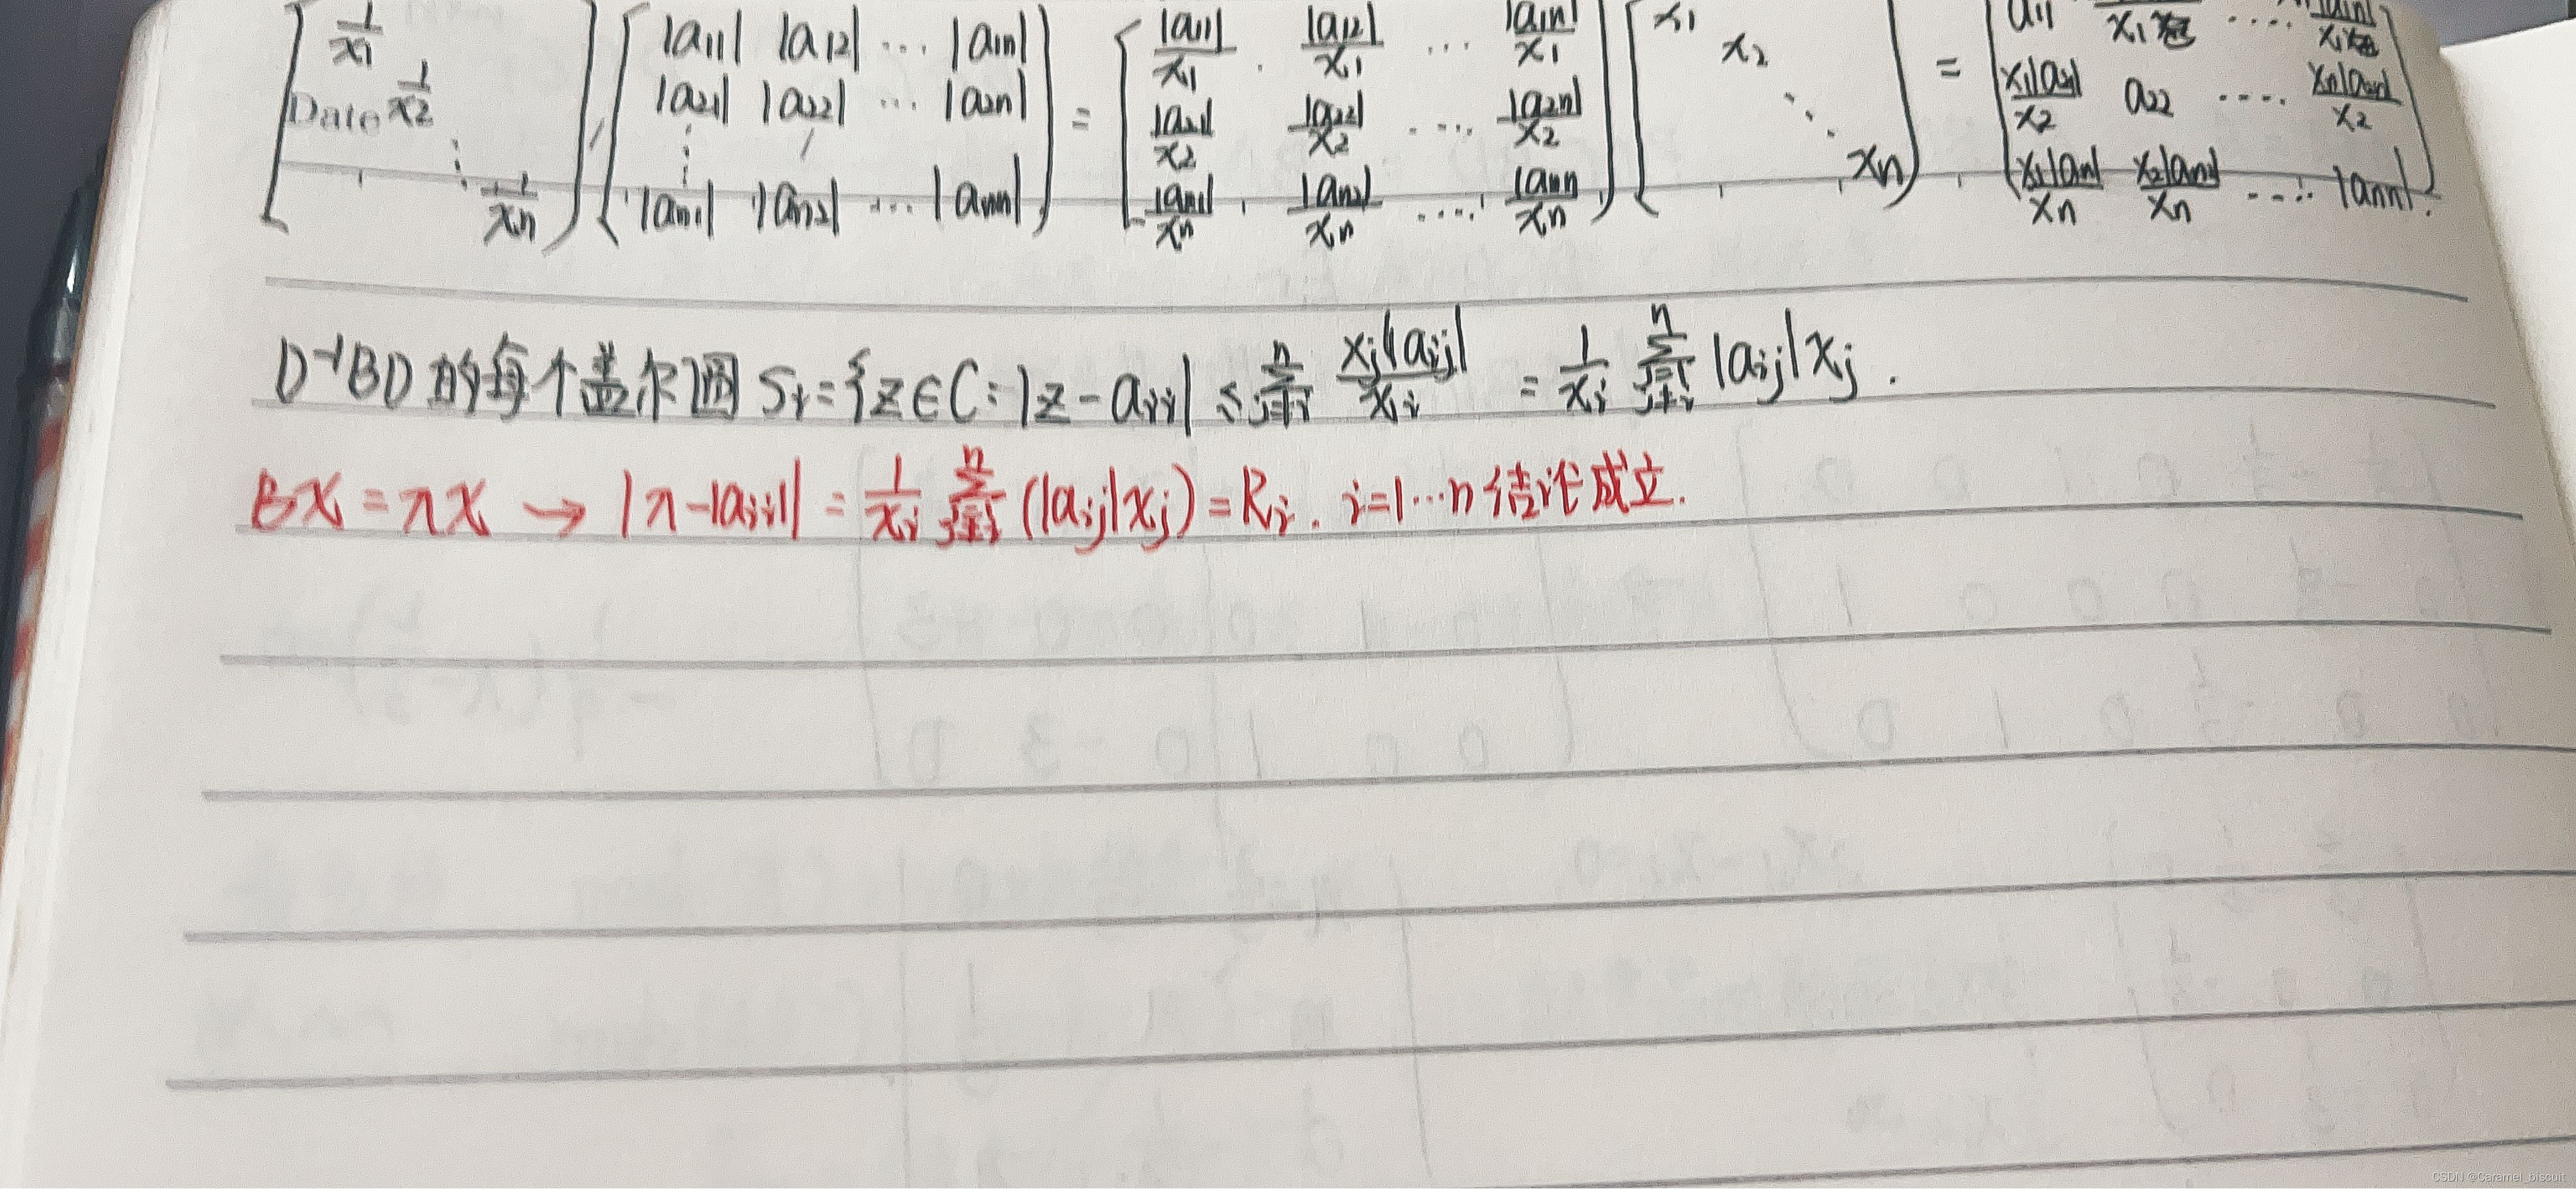 [1/x1 1/x2 ⋱ 1/xn] [|a11| |a12| ... |a1n| |a21| |a22| ... |a2n| ⋮ |an1| |an2| ... |ann|] = [|a11|/x1 |a12|/x1 ... |a1n|/x1 |a21|/x2 |a22|/x2 .... |a2n|/x2 |an1|/xn |an2|/xn ..... |ann|/xn] [x1 x2 ⋱ xn] = [a11 x1 .... |a1n| x1 x1|a21|/x2 a22 .... xn|a2n|/x2 x1|an1|/xn x2|an2|/xn .... |ann|].
Date
D⁻¹BD 的每个盖尔圆 Si={z∈C: |z-aii| ≤ Σ(j=1, j≠i)^n xj|aij|/xi = 1/xi Σ(j=1, j≠i)^n |aij|xj.
Bx=λx → |λ-|aii|| = 1/xi Σ(j=1, j≠i)^n (|aij|xj)=Ri. i=1...n 结论成立.
CSDN @Caramel_biscuit